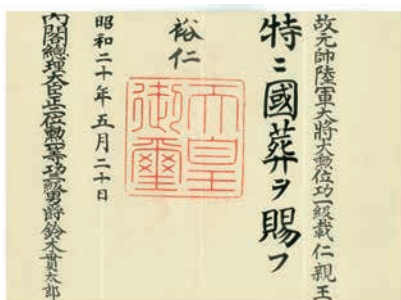 故元帥陸軍大將大勲位功一級載仁親王
特ニ國葬ヲ賜フ
裕仁
天皇御璽
昭和二十年五月二十日
內閣總理大臣正三位勲一等功三級男爵鈴木貫太郎